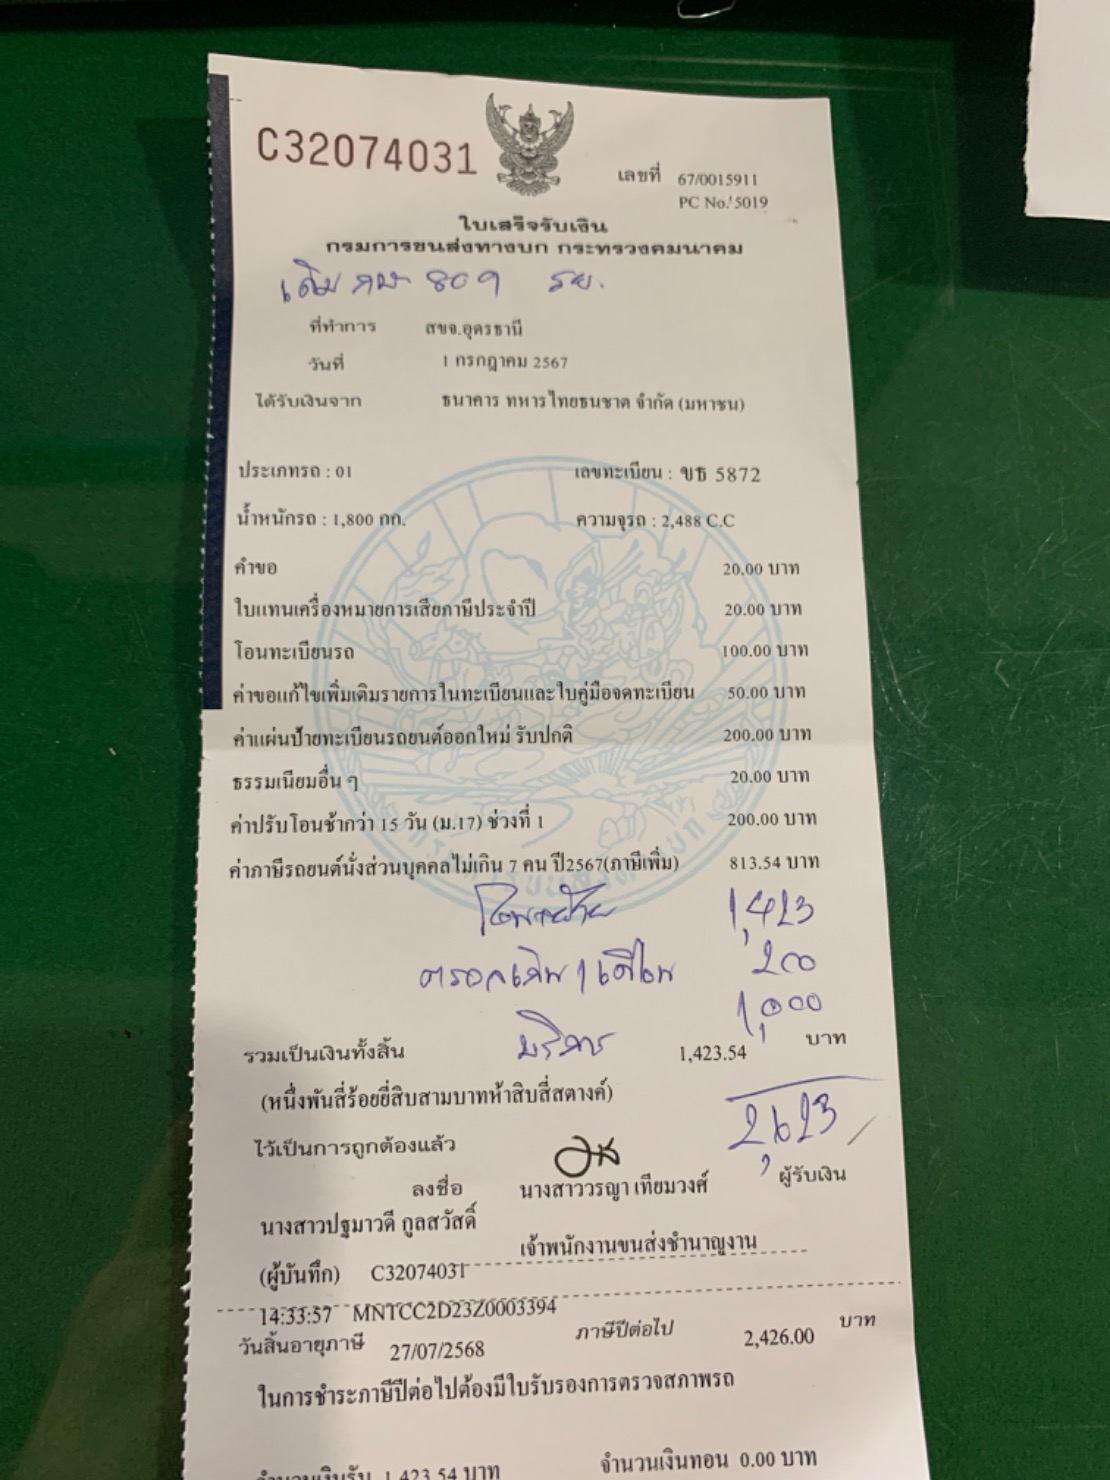 C32074031
เลขที่ 67/0015911
PC No. 5019
ใบเสร็จรับเงิน
กรมการขนส่งทางบก กระทรวงคมนาคม
เดิม 809 รย.
ที่ทำการ สขจ.อุดรธานี
วันที่ 1 กรกฎาคม 2567
ได้รับเงินจาก ธนาคาร ทหารไทยธนชาต จำกัด (มหาชน)
ประเภทรถ : 01 เลขทะเบียน : ขธ 5872
น้ำหนักรถ : 1,800 กก. ความจุรถ : 2,488 C.C
คำขอ 20.00 บาท
ใบแทนเครื่องหมายการเสียภาษีประจำปี 20.00 บาท
โอนทะเบียนรถ 100.00 บาท
ค่าขอแก้ไขเพิ่มเติมรายการในทะเบียนและใบคู่มือจดทะเบียน 50.00 บาท
ค่าแผ่นป้ายทะเบียนรถยนต์ออกใหม่ รับปกติ 200.00 บาท
ธรรมเนียมอื่น ๆ 20.00 บาท
ค่าปรับโอนช้ากว่า 15 วัน (ม.17) ช่วงที่ 1 200.00 บาท
ค่าภาษีรถยนต์นั่งส่วนบุคคลไม่เกิน 7 คน ปี2567(ภาษีเพิ่ม) 813.54 บาท
1,423
200
บริการ 1,000
รวมเป็นเงินทั้งสิ้น 1,423.54 บาท
(หนึ่งพันสี่ร้อยยี่สิบสามบาทห้าสิบสี่สตางค์)
2,623
ไว้เป็นการถูกต้องแล้ว
ลงชื่อ นางสาววรญา เทียมวงศ์ ผู้รับเงิน
นางสาวปฐมาวดี กูลสวัสดิ์
เจ้าพนักงานขนส่งชำนาญงาน
(ผู้บันทึก) C32074031
14:33:57 MNTCC2D23Z0003394
วันสิ้นอายุภาษี 27/07/2568 ภาษีปีต่อไป 2,426.00 บาท
ในการชำระภาษีปีต่อไปต้องมีใบรับรองการตรวจสภาพรถ
จำนวนเงินรับ 1,423.54 บาท จำนวนเงินทอน 0.00 บาท